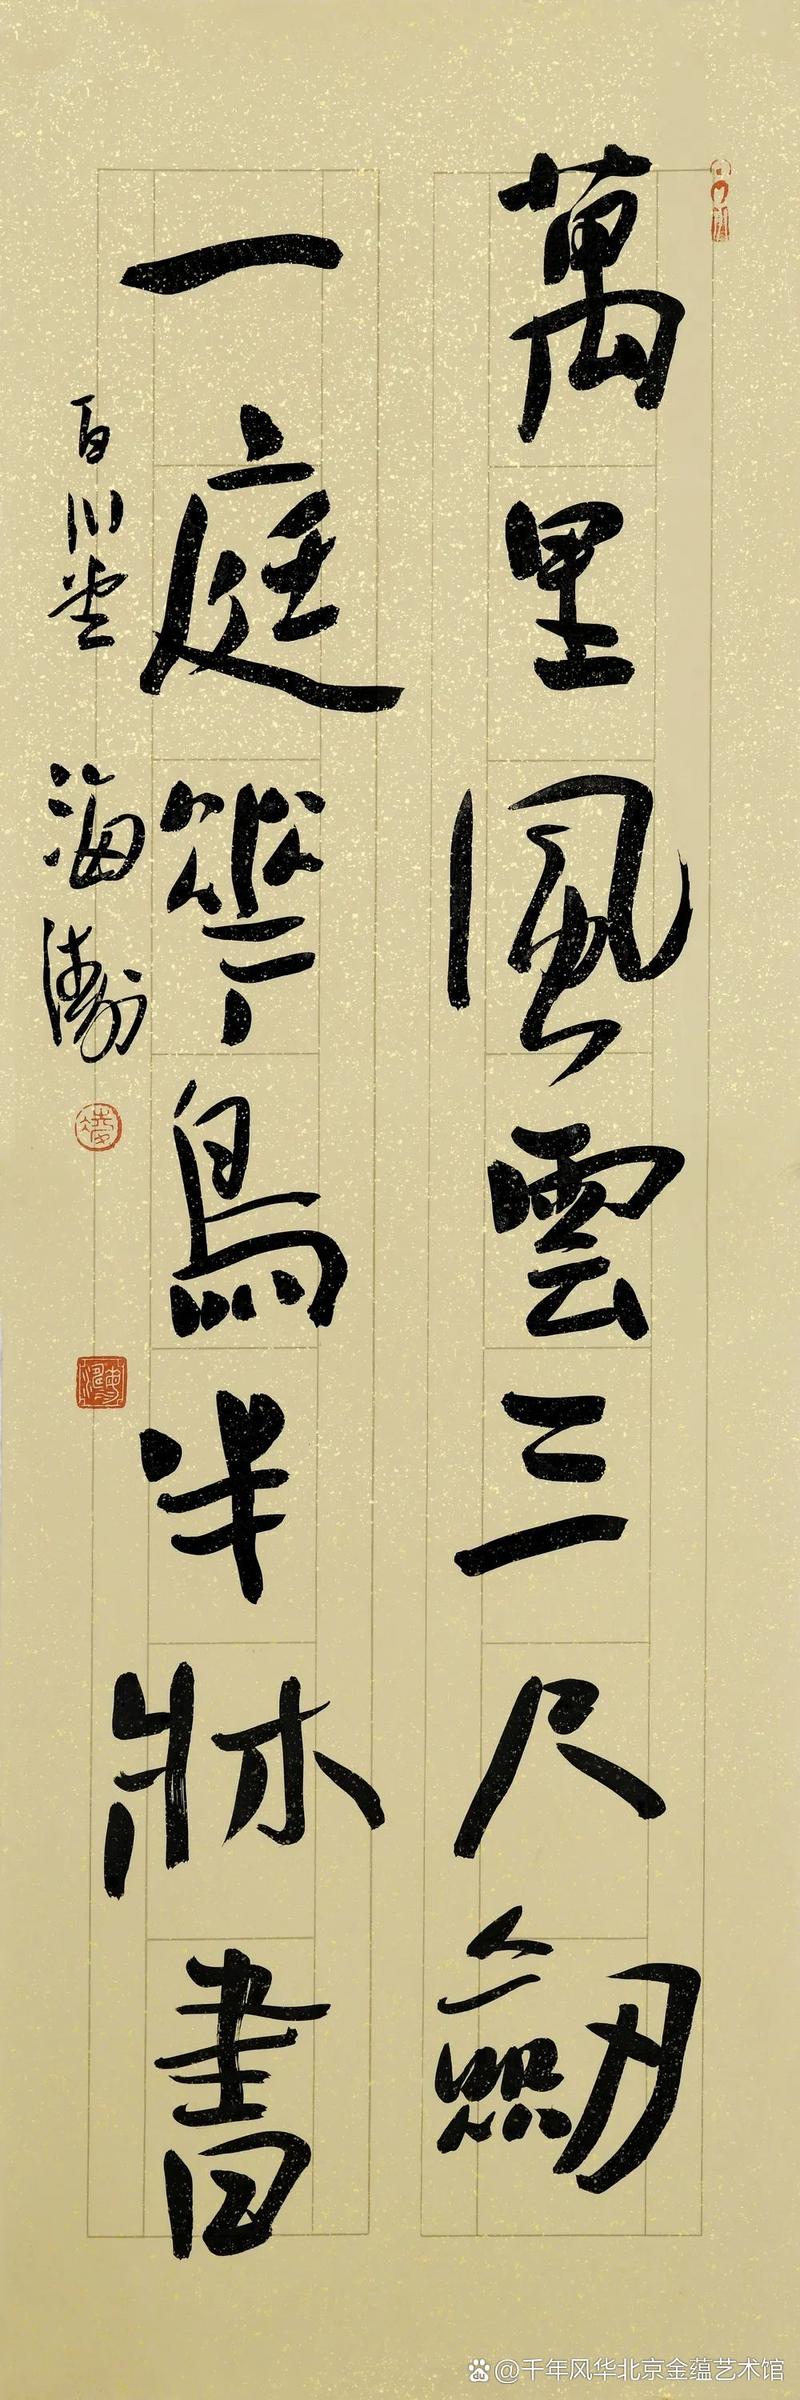 萬里風雲三尺劒
一庭華鳥半牀書
百川堂 海濤
du @千年风华北京金蕴艺术馆